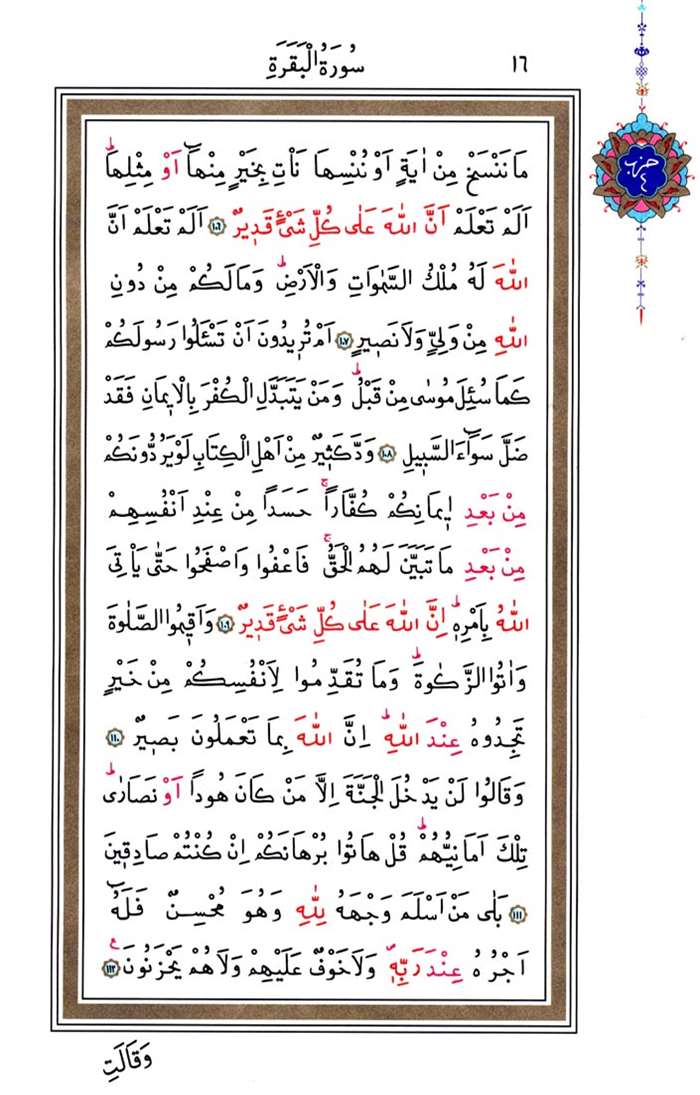 سُورَةُ الْبَقَرَةِ ١٦
حزب ٤
مَا نَنْسَخْ مِنْ اٰيَةٍ اَوْ نُنْسِهَا نَأْتِ بِخَيْرٍ مِنْهَٓا اَوْ مِثْلِهَاۜ
اَلَمْ تَعْلَمْ اَنَّ اللّٰهَ عَلٰى كُلِّ شَيْءٍ قَد۪يرٌ ﴿١٠٦﴾ اَلَمْ تَعْلَمْ اَنَّ
اللّٰهَ لَهُ مُلْكُ السَّمٰوَاتِ وَالْاَرْضِۜ وَمَا لَكُمْ مِنْ دُونِ
اللّٰهِ مِنْ وَلِيٍّ وَلَا نَص۪يرٍ ﴿١٠٧﴾ اَمْ تُر۪يدُونَ اَنْ تَسْـَٔلُوا رَسُولَكُمْ
كَمَا سُئِلَ مُوسٰى مِنْ قَبْلُۜ وَمَنْ يَتَبَدَّلِ الْكُفْرَ بِالْا۪يمَانِ فَقَدْ
ضَلَّ سَوَٓاءَ السَّب۪يلِ ﴿١٠٨﴾ وَدَّ كَث۪يرٌ مِنْ اَهْلِ الْكِتَابِ لَوْ يَرُدُّونَكُمْ
مِنْ بَعْدِ ا۪يمَانِكُمْ كُفَّاراًۚ حَسَداً مِنْ عِنْدِ اَنْفُسِهِمْ
مِنْ بَعْدِ مَا تَبَيَّنَ لَهُمُ الْحَقُّۚ فَاعْفُوا وَاصْفَحُوا حَتّٰى يَأْتِيَ
اللّٰهُ بِاَمْرِه۪ۜ اِنَّ اللّٰهَ عَلٰى كُلِّ شَيْءٍ قَد۪يرٌ ﴿١٠٩﴾ وَاَق۪يمُوا الصَّلٰوةَ
وَاٰتُوا الزَّكٰوةَۜ وَمَا تُقَدِّمُوا لِاَنْفُسِكُمْ مِنْ خَيْرٍ
تَجِدُوهُ عِنْدَ اللّٰهِۜ اِنَّ اللّٰهَ بِمَا تَعْمَلُونَ بَص۪يرٌ ﴿١١٠﴾
وَقَالُوا لَنْ يَدْخُلَ الْجَنَّةَ اِلَّا مَنْ كَانَ هُوداً اَوْ نَصَارٰىۜ
تِلْكَ اَمَانِيُّهُمْۜ قُلْ هَاتُوا بُرْهَانَكُمْ اِنْ كُنْتُمْ صَادِق۪ينَ
﴿١١١﴾ بَلٰى مَنْ اَسْلَمَ وَجْهَهُ لِلّٰهِ وَهُوَ مُحْسِنٌ فَلَهُٓ
اَجْرُهُ عِنْدَ رَبِّه۪ۖ وَلَا خَوْفٌ عَلَيْهِمْ وَلَا هُمْ يَحْزَنُونَ۟ ﴿١١٢﴾
وَقَالَتِ